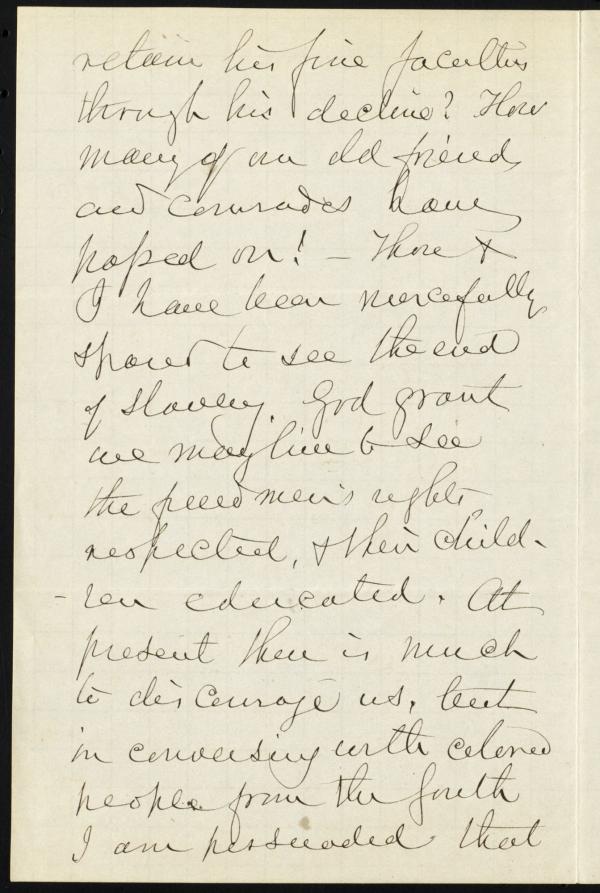 retain his fine faculties
through his decline? How
many of our old friends
and comrades have
passed on! — Thou &
I have been mercifully
spared to see the end
of slavery. God grant
we may live to see
the freedmen's rights
respected, & their child-
-ren educated. At
present there is much
to discourage us, but
in conversing with colored
people from the South
I am persuaded that